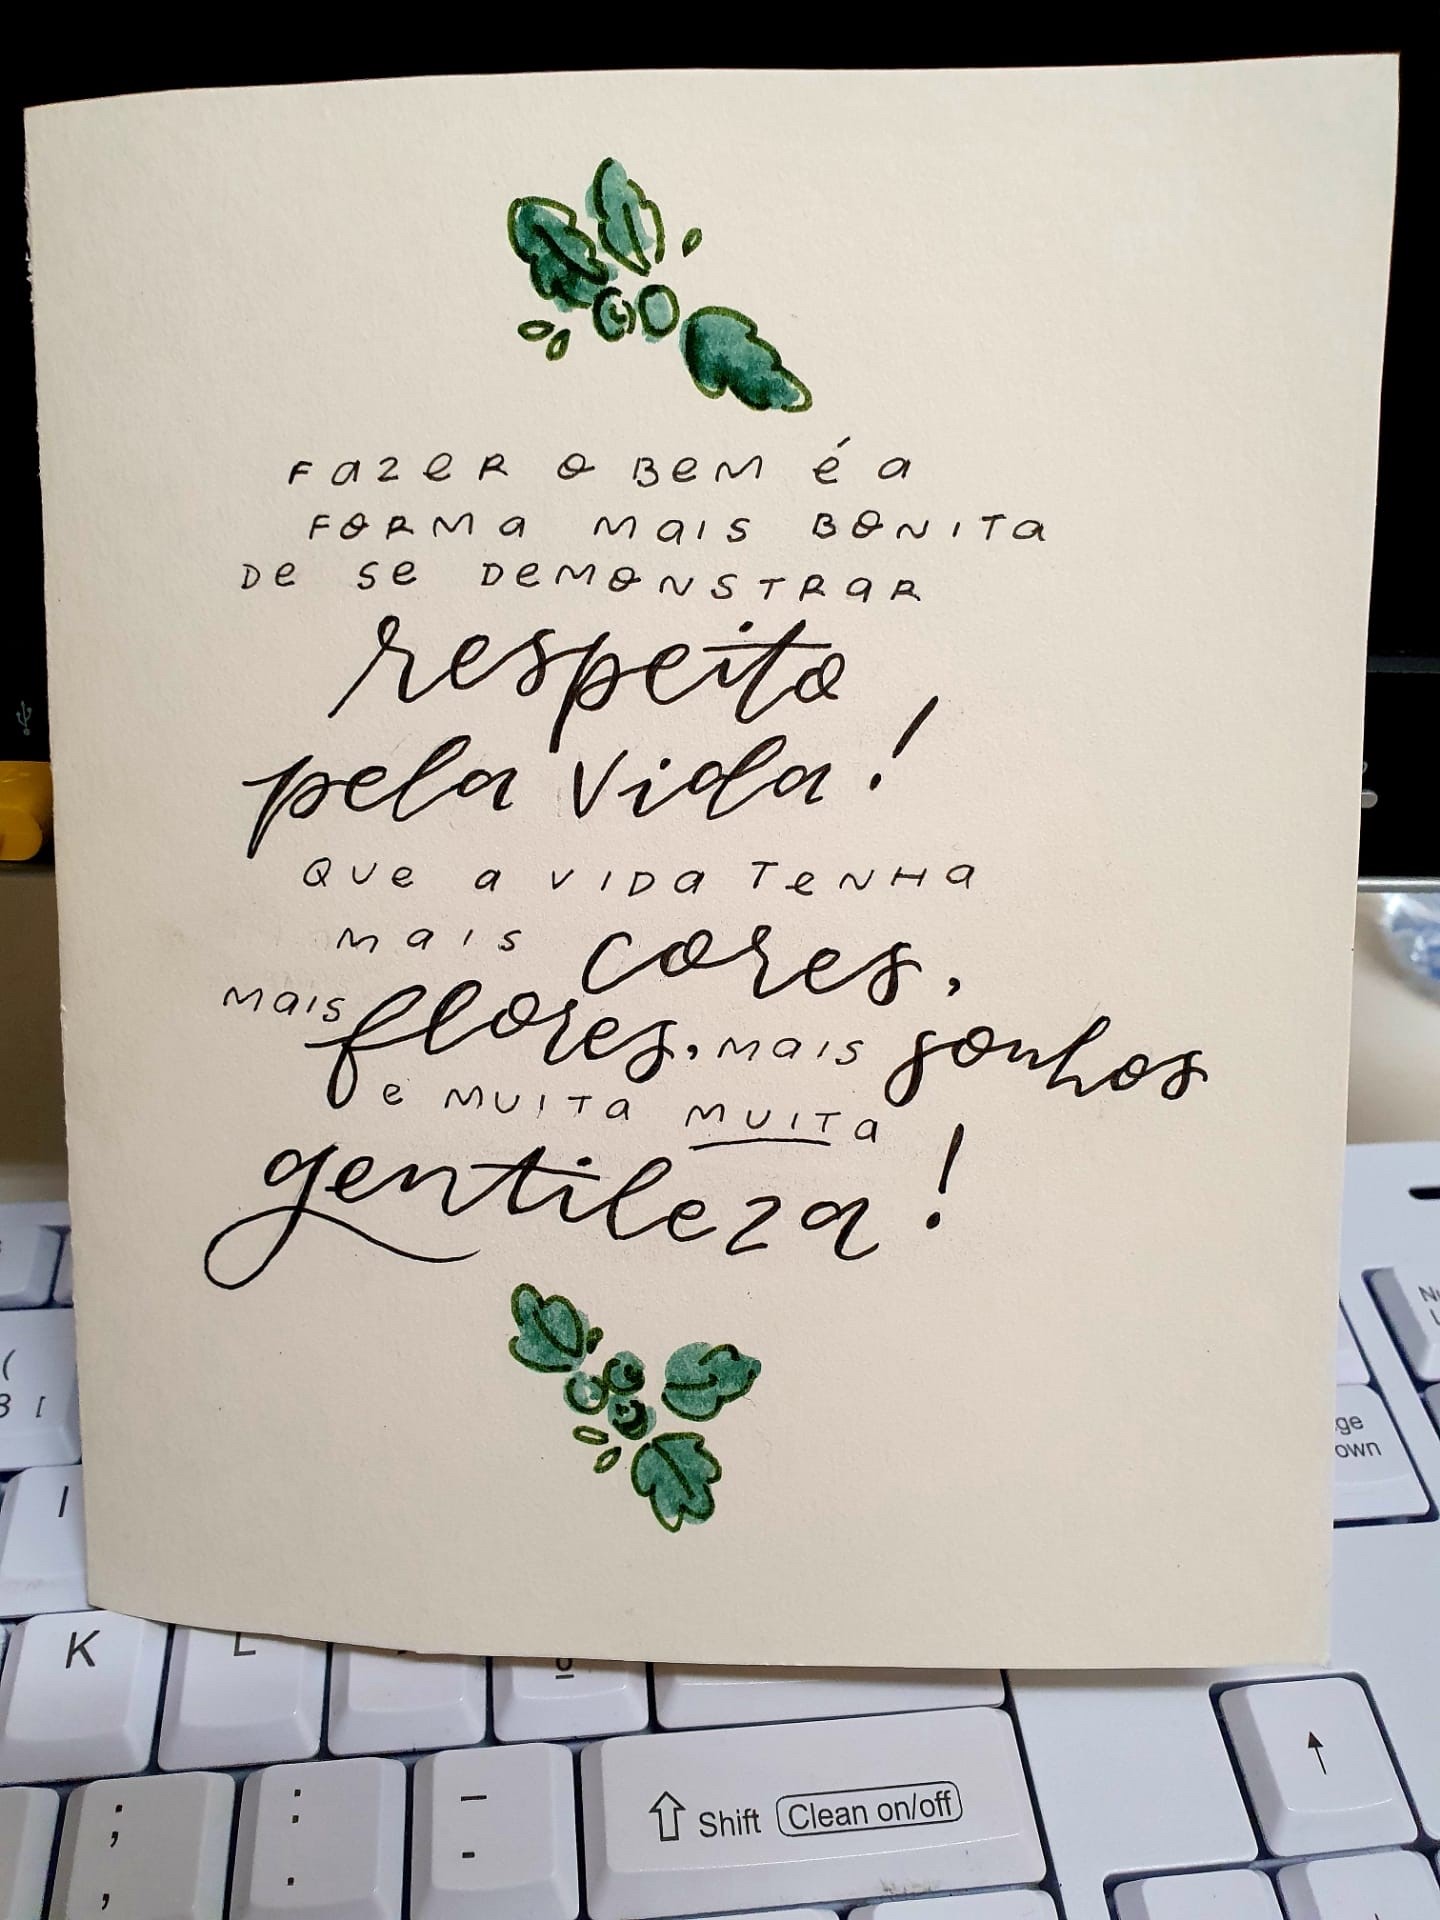 Fazer o bem é a
forma mais bonita
de se demonstrar
respeito
pela vida!
Que a vida tenha
mais cores,
mais flores, mais sonhos
e muita muita
gentileza!
( 
3 [
I
K
L
º
; ,
: .
_ -
⇧ Shift Clean on/off
↑
ge
own